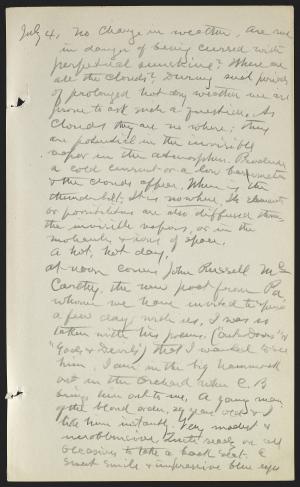 July 4, No change in weather. Are we
in danger of being cursed with
perpetual sunshine? Where are
all the clouds? During such periods
of prolonged hot dry weather we are
prone to ask such a question. As
clouds they are no where; they
are potential in the invisible
vapor in the atmosphere. Produce
a cold current or a low barometer
& the clouds appear. Where is the
thunderbolt? It is nowhere. Its elements
or possibilities are also diffused through
the invisible vapors, or in the
molecules & ions of space.
A hot, hot day,
At noon comes John Russell Mc
Carthy, the new poet from Pa,
whom we have invited to spend
a few days with us. I was so
taken with his poems, ("Out-Doors" &
"Gods & Devils") that I wanted to see
him. I am in the big hammock
out in the orchard when C. B.
brings him out to me. A young man
of the blond order, 29 years old & I
like him instantly. Very modest &
unobtrusive, quite ready on all
occasions to take a back seat. A
sweet smile & impressive blue eyes